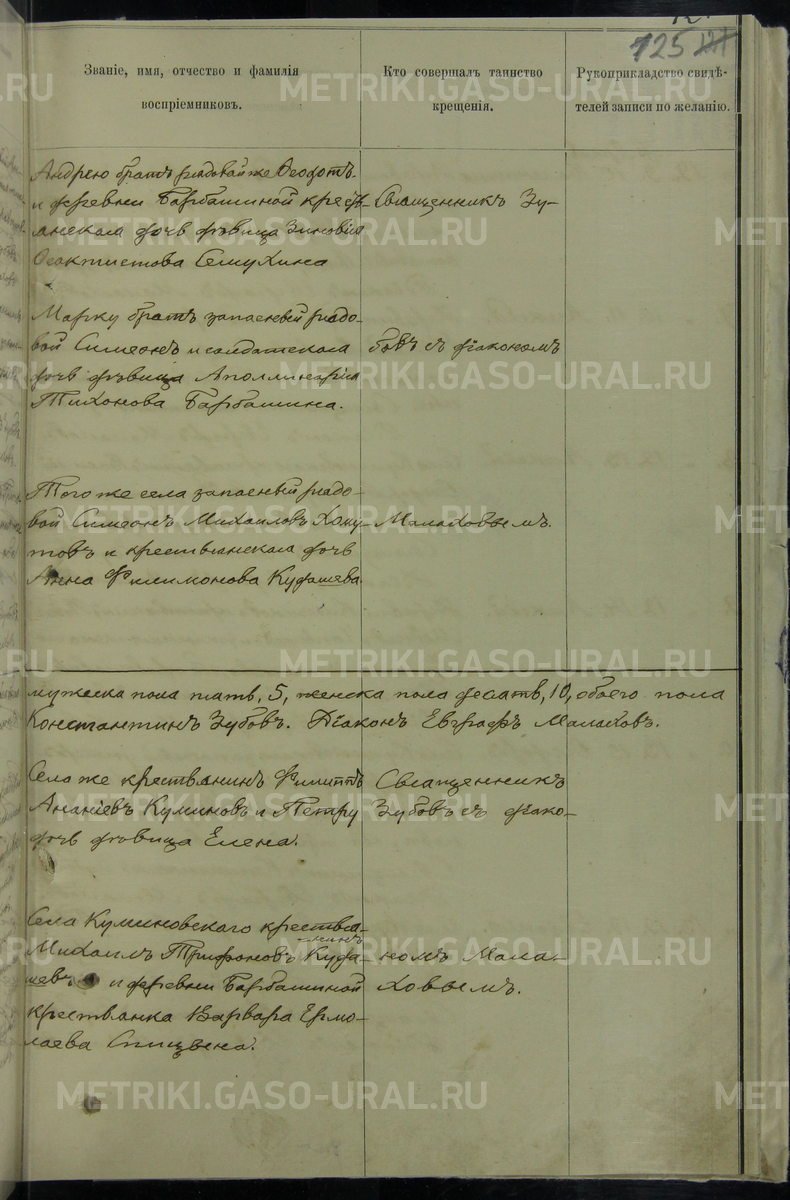 125
Званіе, имя, отчество и фамилія
воспріемниковъ.
Кто совершалъ таинство
крещенія.
Рукоприкладство свидѣ-
телей записи по желанію.
Андрею братъ рядовой же Ѳеодотъ
и деревни Барбашиной кресть-
янская дочь дѣвица Зиновія
Ѳеоктистова Семухина
Священникъ Зу-
Марку братъ запасный рядо-
вой Симеонъ и солдатская
дочь дѣвица Аполлинарія
Тихонова Барбашина.
бовъ съ діакономъ
Того же села запасный рядо-
вой Симеонъ Михаиловъ Хому-
товъ и крестьянская дочь
Анна Филимонова Кудашева
Малаховымъ.
мужеска пола пять, 5, женска пола десять, 10, обоего пола
Константинъ Зубовъ. Діаконъ Евграфъ Малаховъ.
Села же крестьянинъ Филиппъ
Ананіевъ Куминовъ и Петру
дочь дѣвица Елена.
Священникъ
Зубовъ съ діако-
Села Куминовскаго крестья-
нинъ
Михаилъ Трифоновъ Куда-
шевъ и деревни Барбашиной
крестьянка Варвара Ермо-
лаева Спицвена.
номъ Мала-
ховымъ.
METRIKI.GASO-URAL.RU